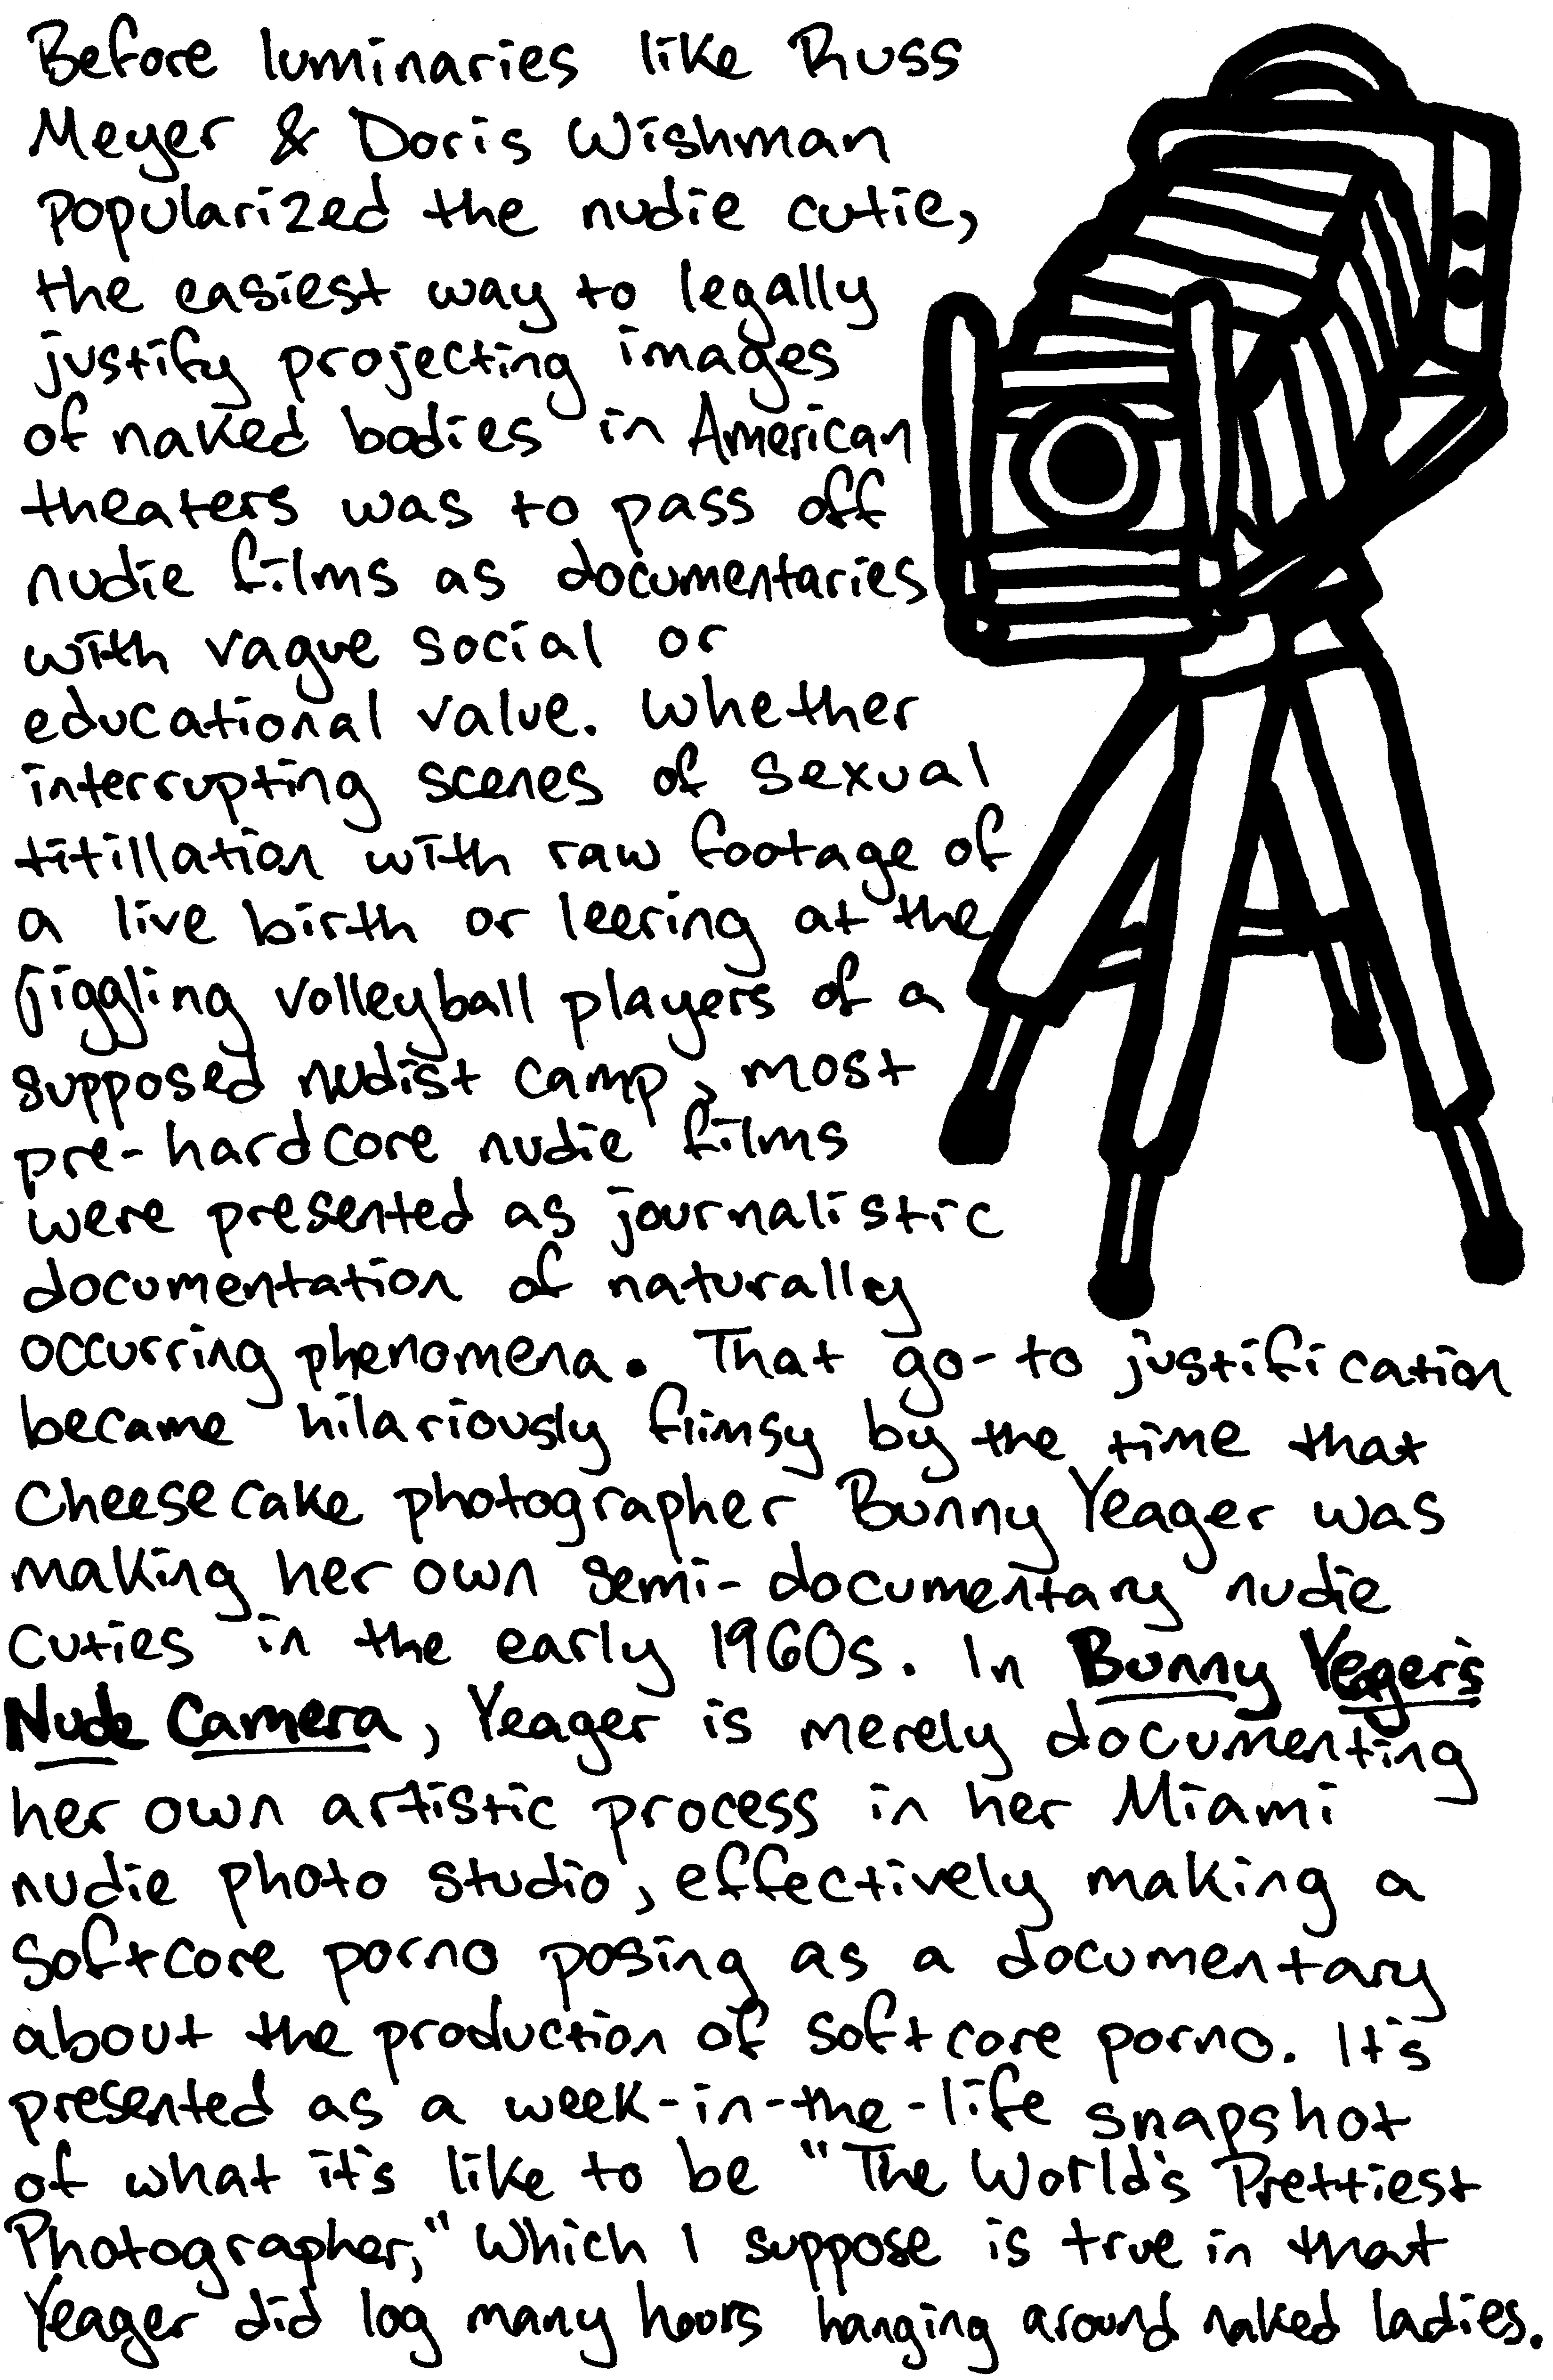 Before luminaries like Russ
Meyer & Doris Wishman
popularized the nudie cutie,
the easiest way to legally
justify projecting images
of naked bodies in American
theaters was to pass off
nudie films as documentaries
with vague social or
educational value. Whether
interrupting scenes of sexual
titillation with raw footage of
a live birth or leering at the
jiggling volleyball players of a
supposed nudist camp, most
pre-hardcore nudie films
were presented as journalistic
documentation of naturally
occurring phenomena. That go-to justification
became hilariously flimsy by the time that
cheesecake photographer Bunny Yeager was
making her own semi-documentary nudie
cuties in the early 1960s. In Bunny Yeager's
Nude Camera, Yeager is merely documenting
her own artistic process in her Miami
nudie photo studio, effectively making a
softcore porno posing as a documentary
about the production of softcore porno. It's
presented as a week-in-the-life snapshot
of what it's like to be "The World's Prettiest
Photographer," which I suppose is true in that
Yeager did log many hours hanging around naked ladies.